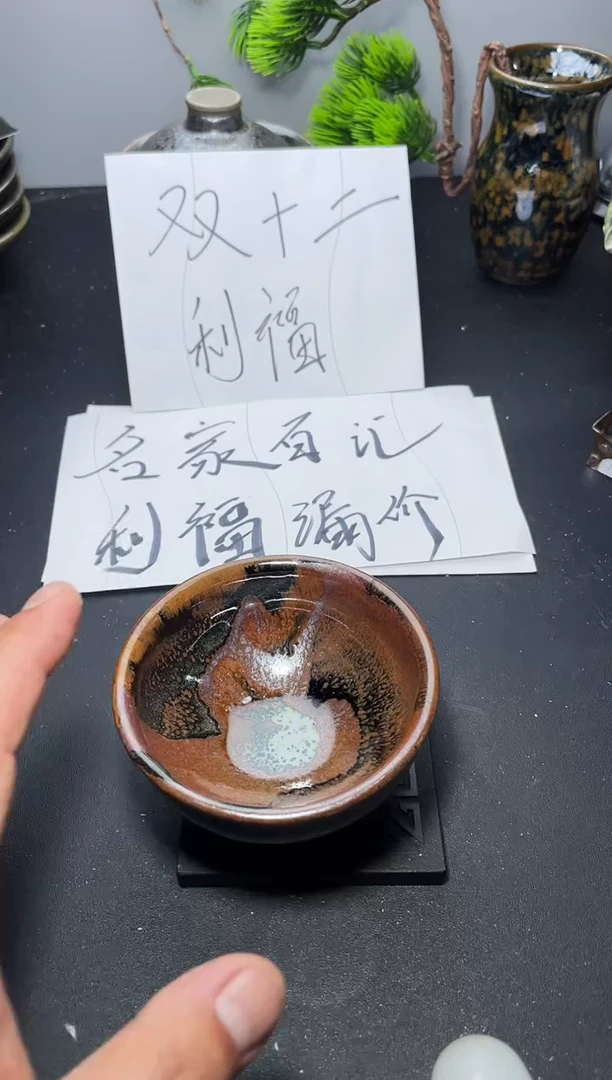 双十二
利福
名家百汇
利福漏价